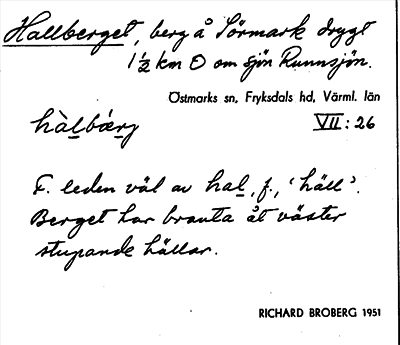 Hallberget, berg å Sörmark drygt
1 1/2 km O om sjön Runnsjön.
Östmarks sn, Fryksdals hd, Värml. län
hàlbǽrg VII: 26
F. leden väl av hal, f., 'häll'.
Berget har branta åt väster
stupande hällar.
RICHARD BROBERG 1951